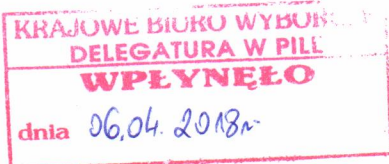 KRAJOWE BIURO
DELEGATURA W
WPŁYNĘŁO
dnia 06.04.2018r